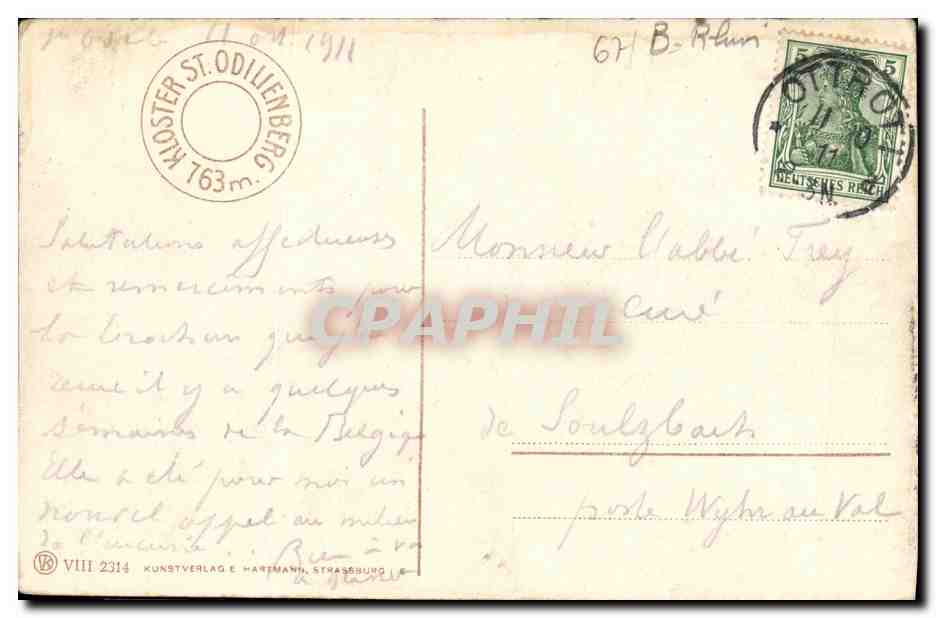 11 oct 1911
67/ B-Rhin
KLOSTER ST. ODILIENBERG
763 m.
5 5
DEUTSCHES REICH
OTTROTT
11 10
11
3N.
Salutations affectueuses
et remerciements pour
la brochure que j'ai
reçue il y a quelques
semaines de la Belgique
Elle a été pour moi un
nouvel appel au milieu
de l'incurie. Bien à vs
Monsieur l'abbé Frey
curé
de Soultzbach
poste Wyhr au Val
CPAPHIL
VK VIII 2314 KUNSTVERLAG E. HARTMANN, STRASSBURG